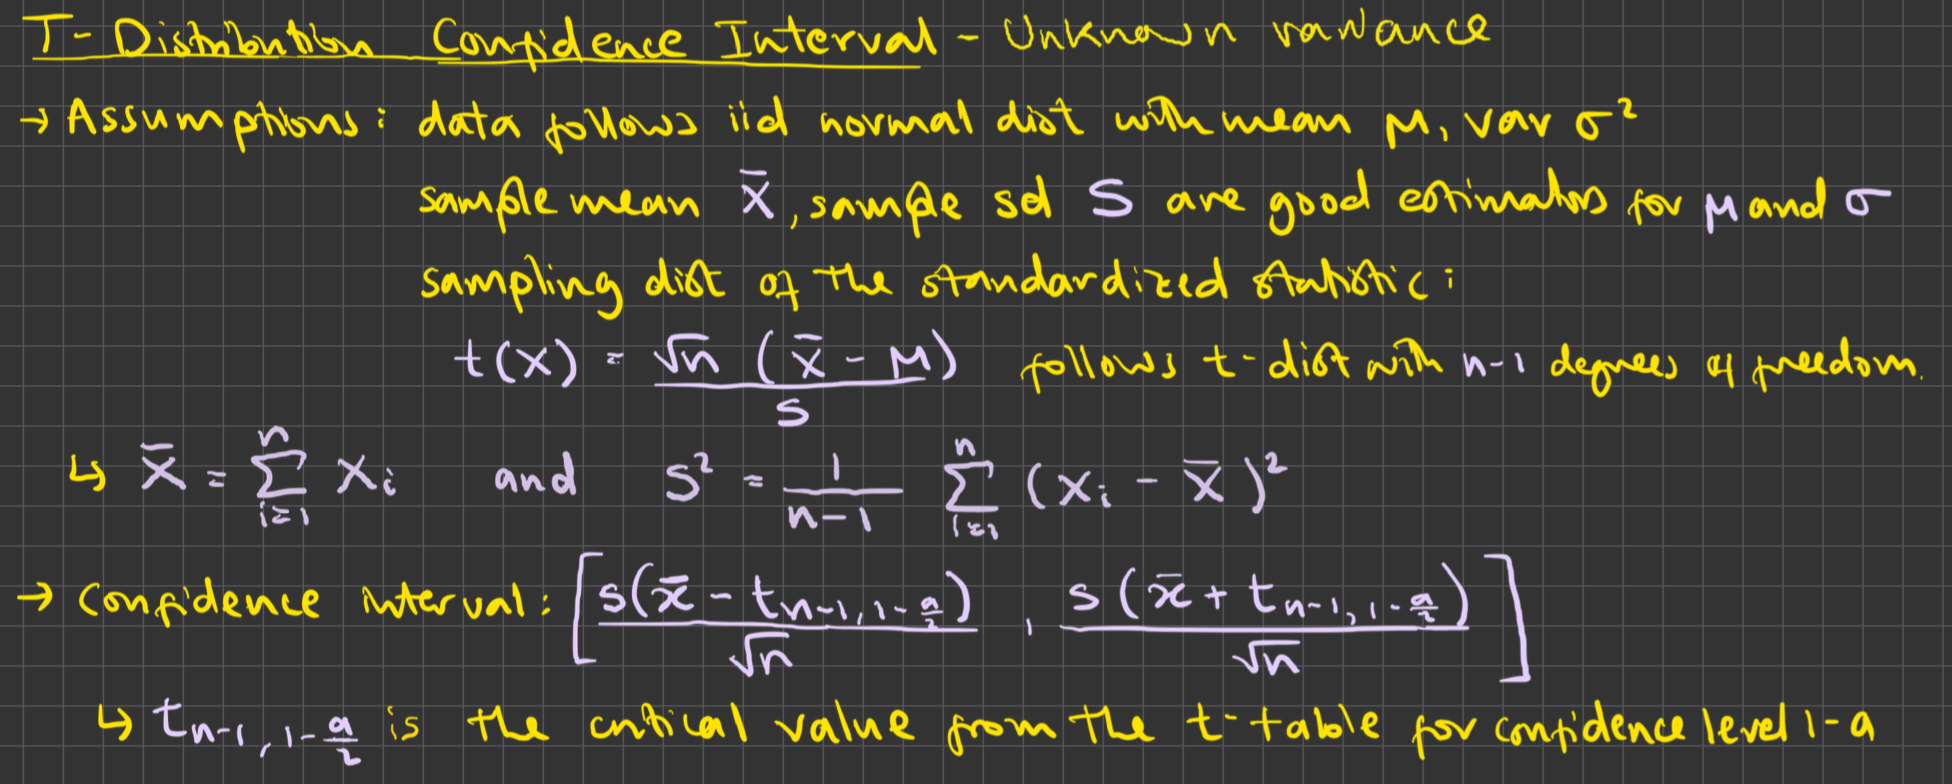 T-Distribution Confidence Interval - Unknown variance
→ Assumptions: data follows iid normal dist with mean μ, var σ²
sample mean X̄, sample sd S are good estimators for μ and σ
sampling dist of the standardized statistic:
t(X) = √n (X̄ - μ) / S follows t-dist with n-1 degrees of freedom.
↳ X̄ = ∑_{i=1}^{n} X_i and S² = 1/(n-1) ∑_{i=1}^{n} (X_i - X̄)²
→ Confidence interval: [ s(x̄ - t_{n-1, 1-a/2}) / √n , s(x̄ + t_{n-1, 1-a/2}) / √n ]
↳ t_{n-1, 1-a/2} is the critical value from the t-table for confidence level 1-a